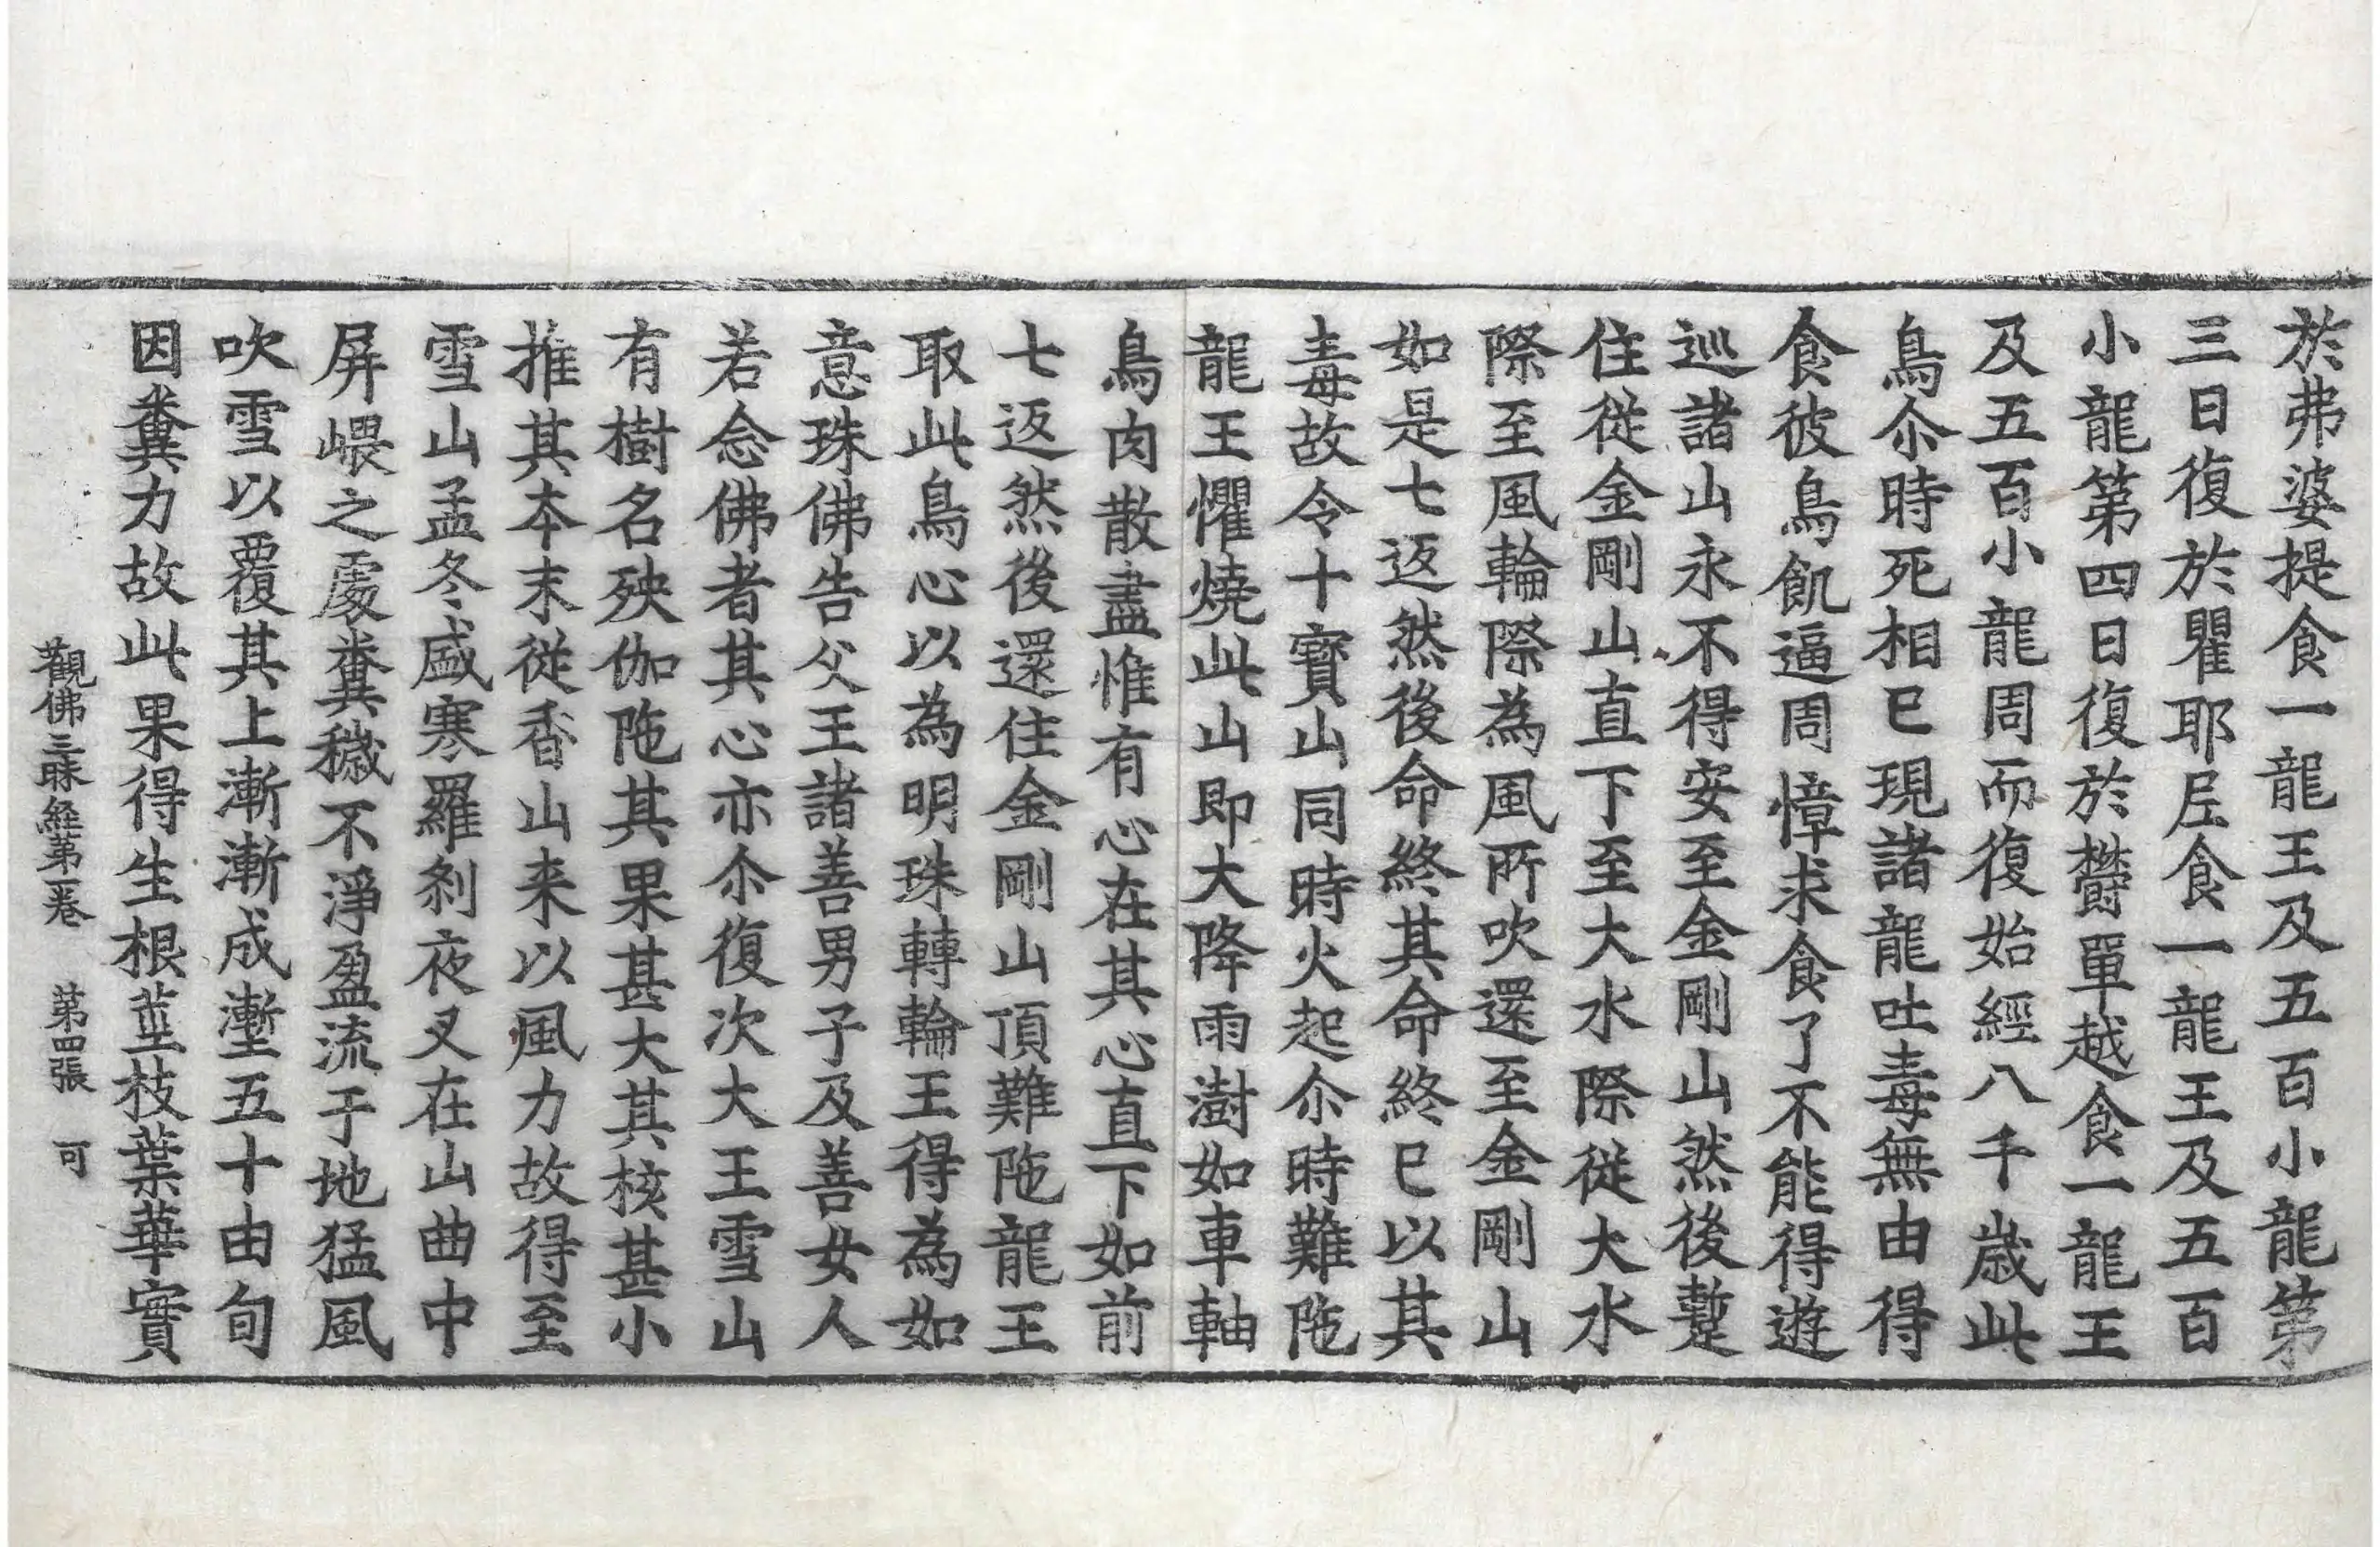 於弗婆提食一龍王及五百小龍第
三日復於瞿耶尼食一龍王及五百
小龍第四日復於欝單越食一龍王
及五百小龍周而復始經八千歳此
鳥尒時死相已現諸龍吐毒無由得
食彼鳥飢逼周慞求食了不能得遊
巡諸山永不得安至金剛山然後蹔
住従金剛山直下至大水際従大水
際至風輪際為風所吹還至金剛山
如是七返然後命終其命終已以其
毒故令十寳山同時火起尒時難陁
龍王懼燒此山即大降雨澍如車軸
鳥肉散盡惟有心在其心直下如前
七返然後還住金剛山頂難陁龍王
取此鳥心以為明珠轉輪王得為如
意珠佛告父王諸善男子及善女人
若念佛者其心亦尒復次大王雪山
有樹名殃伽陁其果甚大其核甚小
推其本末従香山来以風力故得至
雪山孟冬盛寒羅剎夜叉在山曲中
屏㟪之處糞穢不淨盈流于地猛風
吹雪以覆其上漸漸成壍五十由旬
因糞力故此果得生根莖枝葉華實
觀佛三昧経第一卷 第四張 可